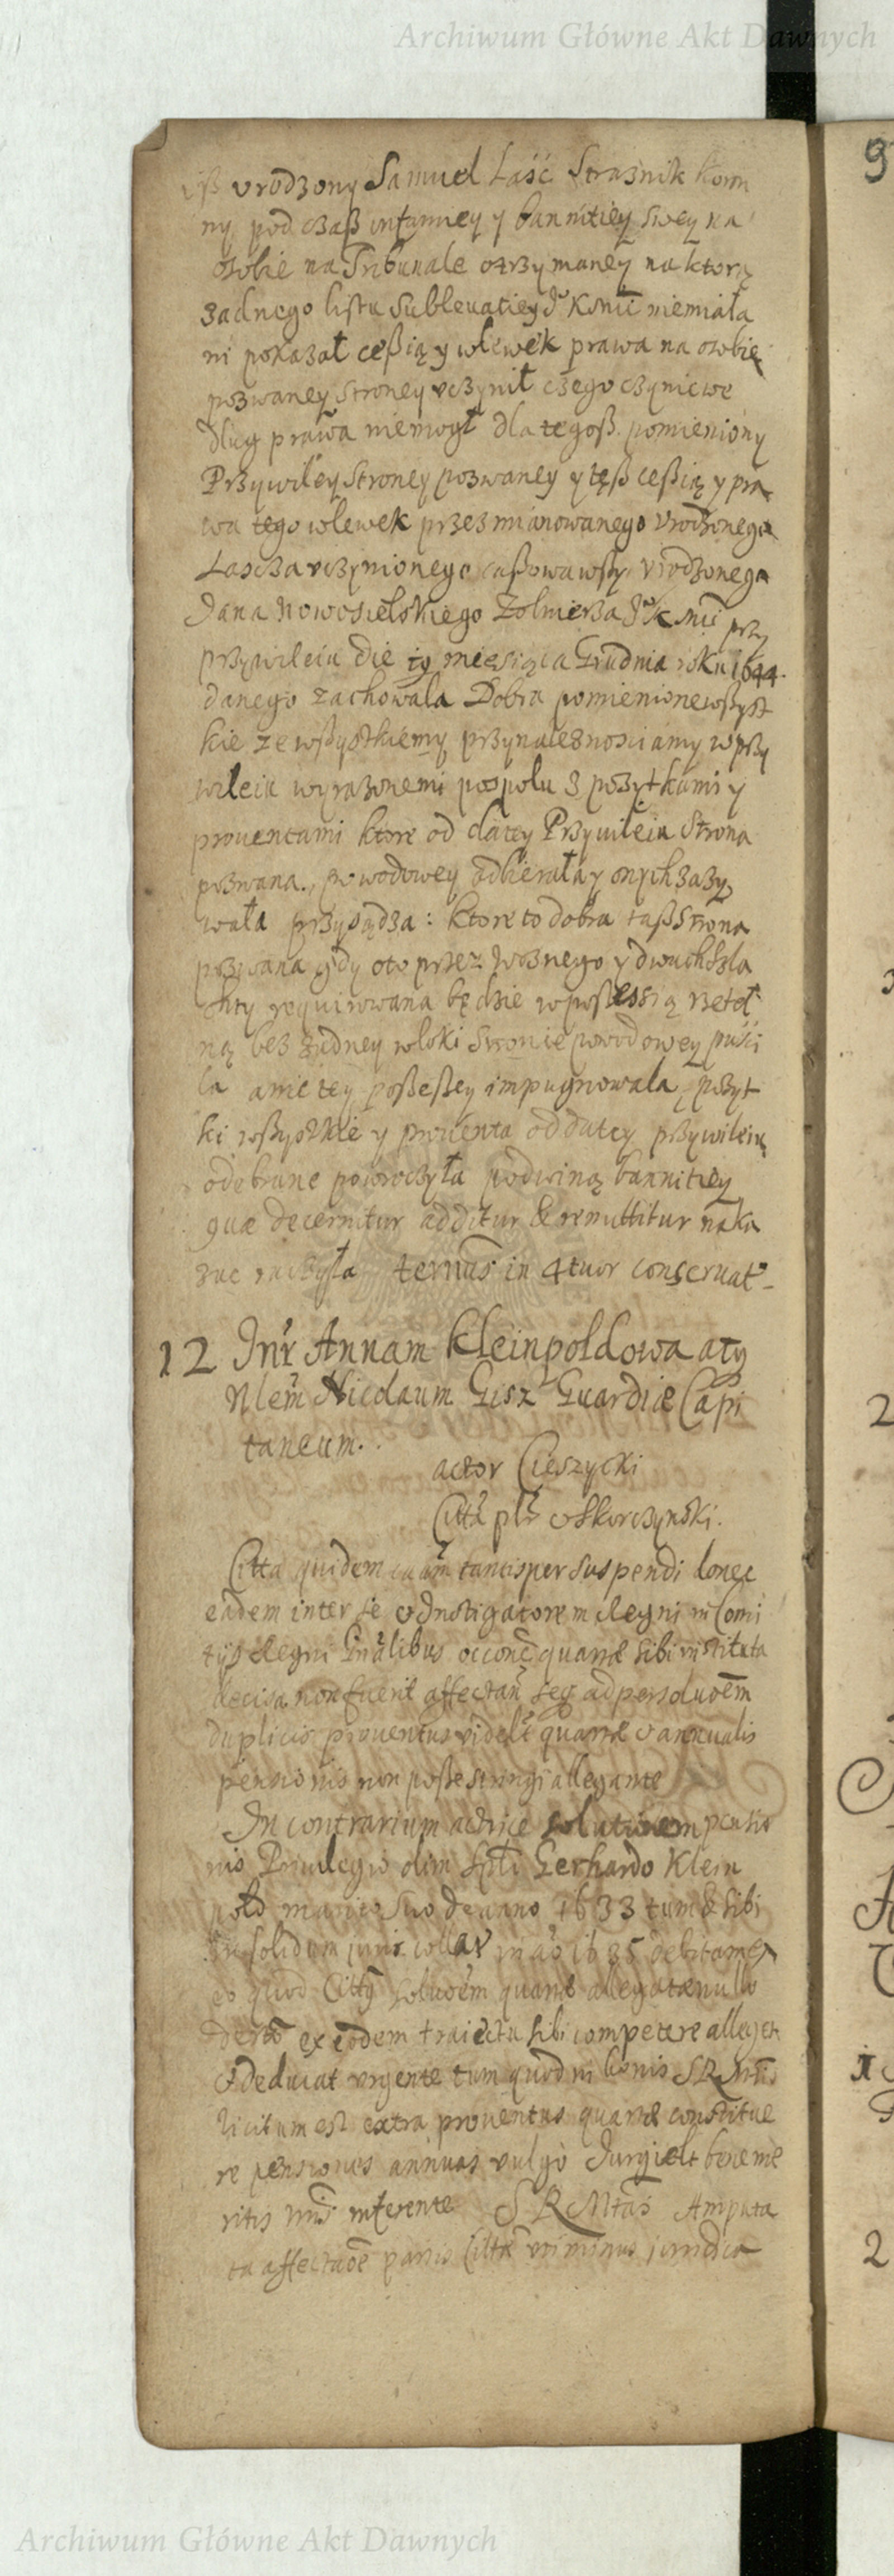 Archiwum Główne Akt Dawnych
9
iß vrodzony Samuel Łaść Straznik Koron
ny pod czaß infamiey y bannitiey swey na
osobie na Tribunale otrzymaney na ktorą
zadnego listu subleuatiey niemiała
ni pokazał ceßią y wlewek prawa na osobie
pozwaney Stroney vczynił czego czynic we
dlug prawa niemogł dla tegoß pomieniony
Przywiley Stroney pozwaney y tęß ceßią y pra
wa tego wlewek przez mianowanego Vrodzonego
Lascza vczynionego caßowawszy Vrodzonego
Jana Nowosielskiego Zolnierza przy
przywileiu die 19 miesiąca Grudnia roku 1644
danego zachowala Dobra pomienione wßyst
kie ze wßystkiemy przynaleznosciamy w przy
wileiu wyrazonemi pospolu z pozytkami y
prouentami ktore od datey Przywileiu Strona
pozwana powodowey odbierała y onych zazy
wała przysądza: ktore to dobra taß Strona
pozwana gdy oto przez Woznego y dwuch Szla
chty requirowana będzie w poßessią rzetel
ną bez zadney wloki Stronie powodowey puści
la a nie tey poßeßey impugnowala, pozyt
ki wßystkie y prouenta od datey przywileiu
odebrane powroczyła pod winą bannitiey
quæ decernitur additur & remittitur naka
zuie in 4tuor conseruat
12 Intr Annam Kleinpoldowa atq
Nlem Nicolaum Gisz Guardiæ Capi
taneum.
actor Cieszycki
Citta plr Skorczynski.
Citta quidem tantisper suspendi donec
eadem inter se Instigatorem Regni in Comi
tijs Regni Gnalibus quartæ sibi instituta
decisa non fuerit ad persoluoem
duplicis prouentus videlt quartæ & annualis
pensionis non posse stringi allegante
In contrarium actrice solutionem pensio
nis Priuilegio olim Gerhardo Klein
pold marito suo de anno 1633 tum & sibi
in solidum 1635 debitam
eo quod Citty soluoem quartæ allegatæ nullo
ex eodem traiectu sibi competere alleget
& deducat vrgente tum quod in bonis SRMtis
licitum est extra prouentus quartæ constitue
re pensiones annuas vulgo Jurgielt beneme
ritis inferente SRMtas Amputa
ta affectaoe partis Citta vti minus juridica
2
2
Archiwum Główne Akt Dawnych